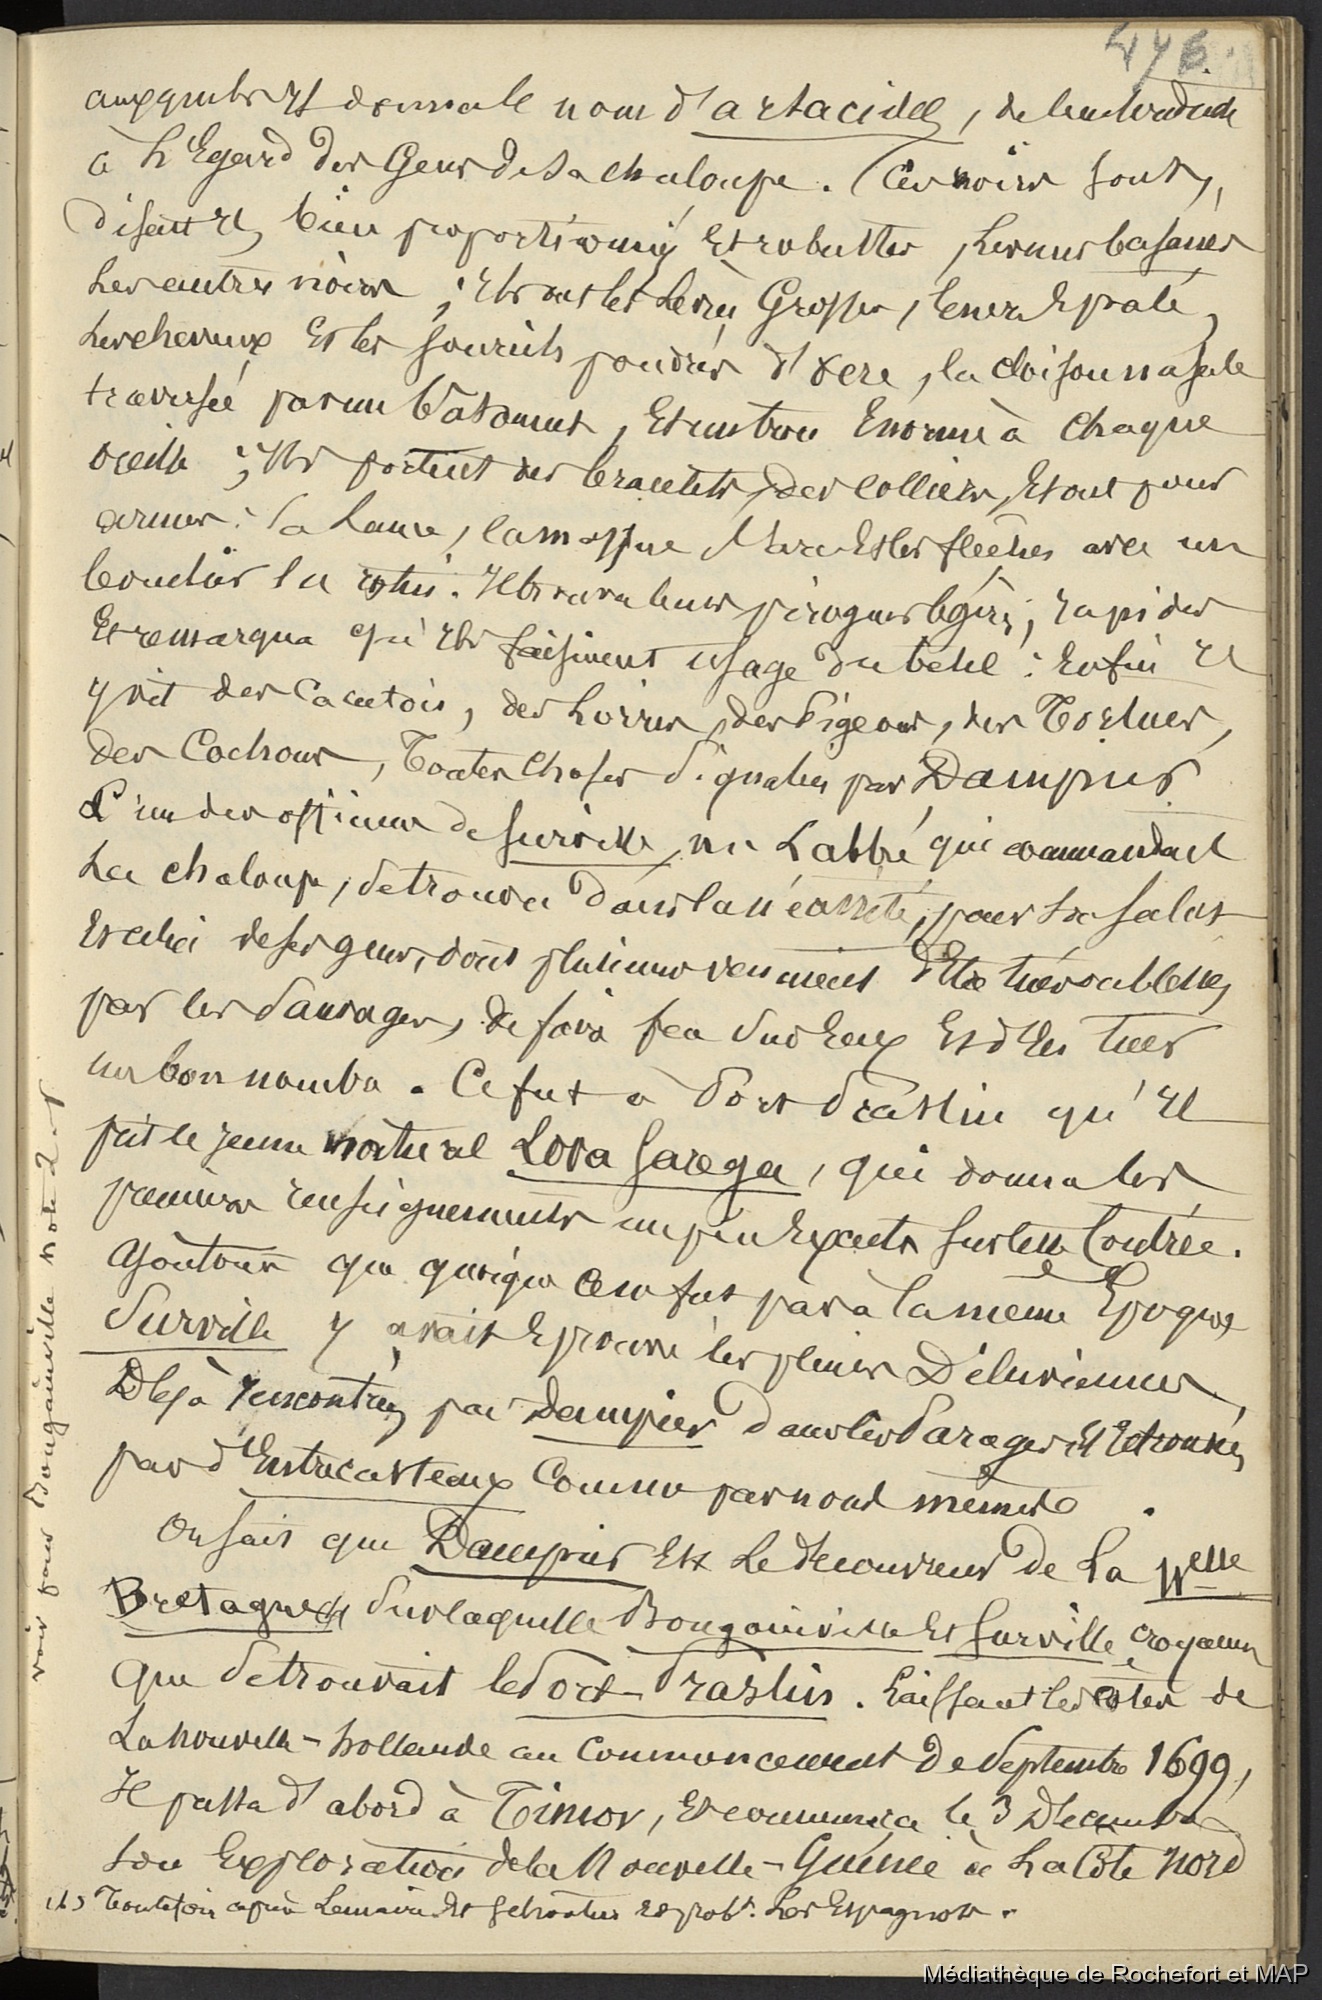 476
auxquels il donna le nom d'arsacides, de leur conduite
à l'Egard des Gens de sa chaloupe. Ces noirs sont,
disait il, bien proportionnés Et robustes, les uns basanés
les autres noirs ; Ils ont les lèvres Grosses, le nez Epaté,
les cheveux Et les sourcils poudrés d'ocre, la cloison nasale
traversée par un batonnet, Et un trou Enorme à chaque
oreille ; Ils portent des bracelets, des colliers, Et ont pour
armes : la lance, la massue l'arc Et les flèches avec un
bouclier en rotin. Il trouva leurs pirogues légères, rapides
Et remarqua qu'ils faisaient usage du bétel : Enfin il
y vit des Cacatois, des Loris, des Pigeons, des Tortues,
des Cochons, Toutes choses signalées par Dampier
L'un des officiers de Surville, Mr Labbé qui commandait
La chaloupe, se trouva dans la nécessité, pour son salut
Et celui de ses gens, dont plusieurs venaient d'Etre blessés
par les Sauvages, de faire feu sur Eux Et d'En tuer
un bon nombre. Ce fut à Port Praslin qu'il
prit le jeune naturel Lova Sarega, qui donna les
premiers renseignements un peu Exacts sur cette Contrée.
Ajoutons que quoique ce ne fut pas à la même Epoque
Surville y avait Eprouvé les pluies Diluviennes
Déjà rencontrées par Dampier dans les Parages Et Retrouvées
par d'Entrecasteaux Comme par nous mêmes.
On sait que Dampier Est le découvreur de La Nelle
Bretagne (1) sur laquelle Bougainville Et Surville croyaient
que se trouvait le Port-Praslin. Laissant les côtes de
La Nouvelle-hollande au Commencement de Septembre 1699,
Il passa d'abord à Timor, Et commença le 3 Décembre
son Exploration de la Nouvelle-Guinée à La Côte Nord
(1) Toutefois après Lemaire Et Schouten Et probt. Les Espagnols.
voir pour Bougainville note 2 a p
Médiathèque de Rochefort et MAP